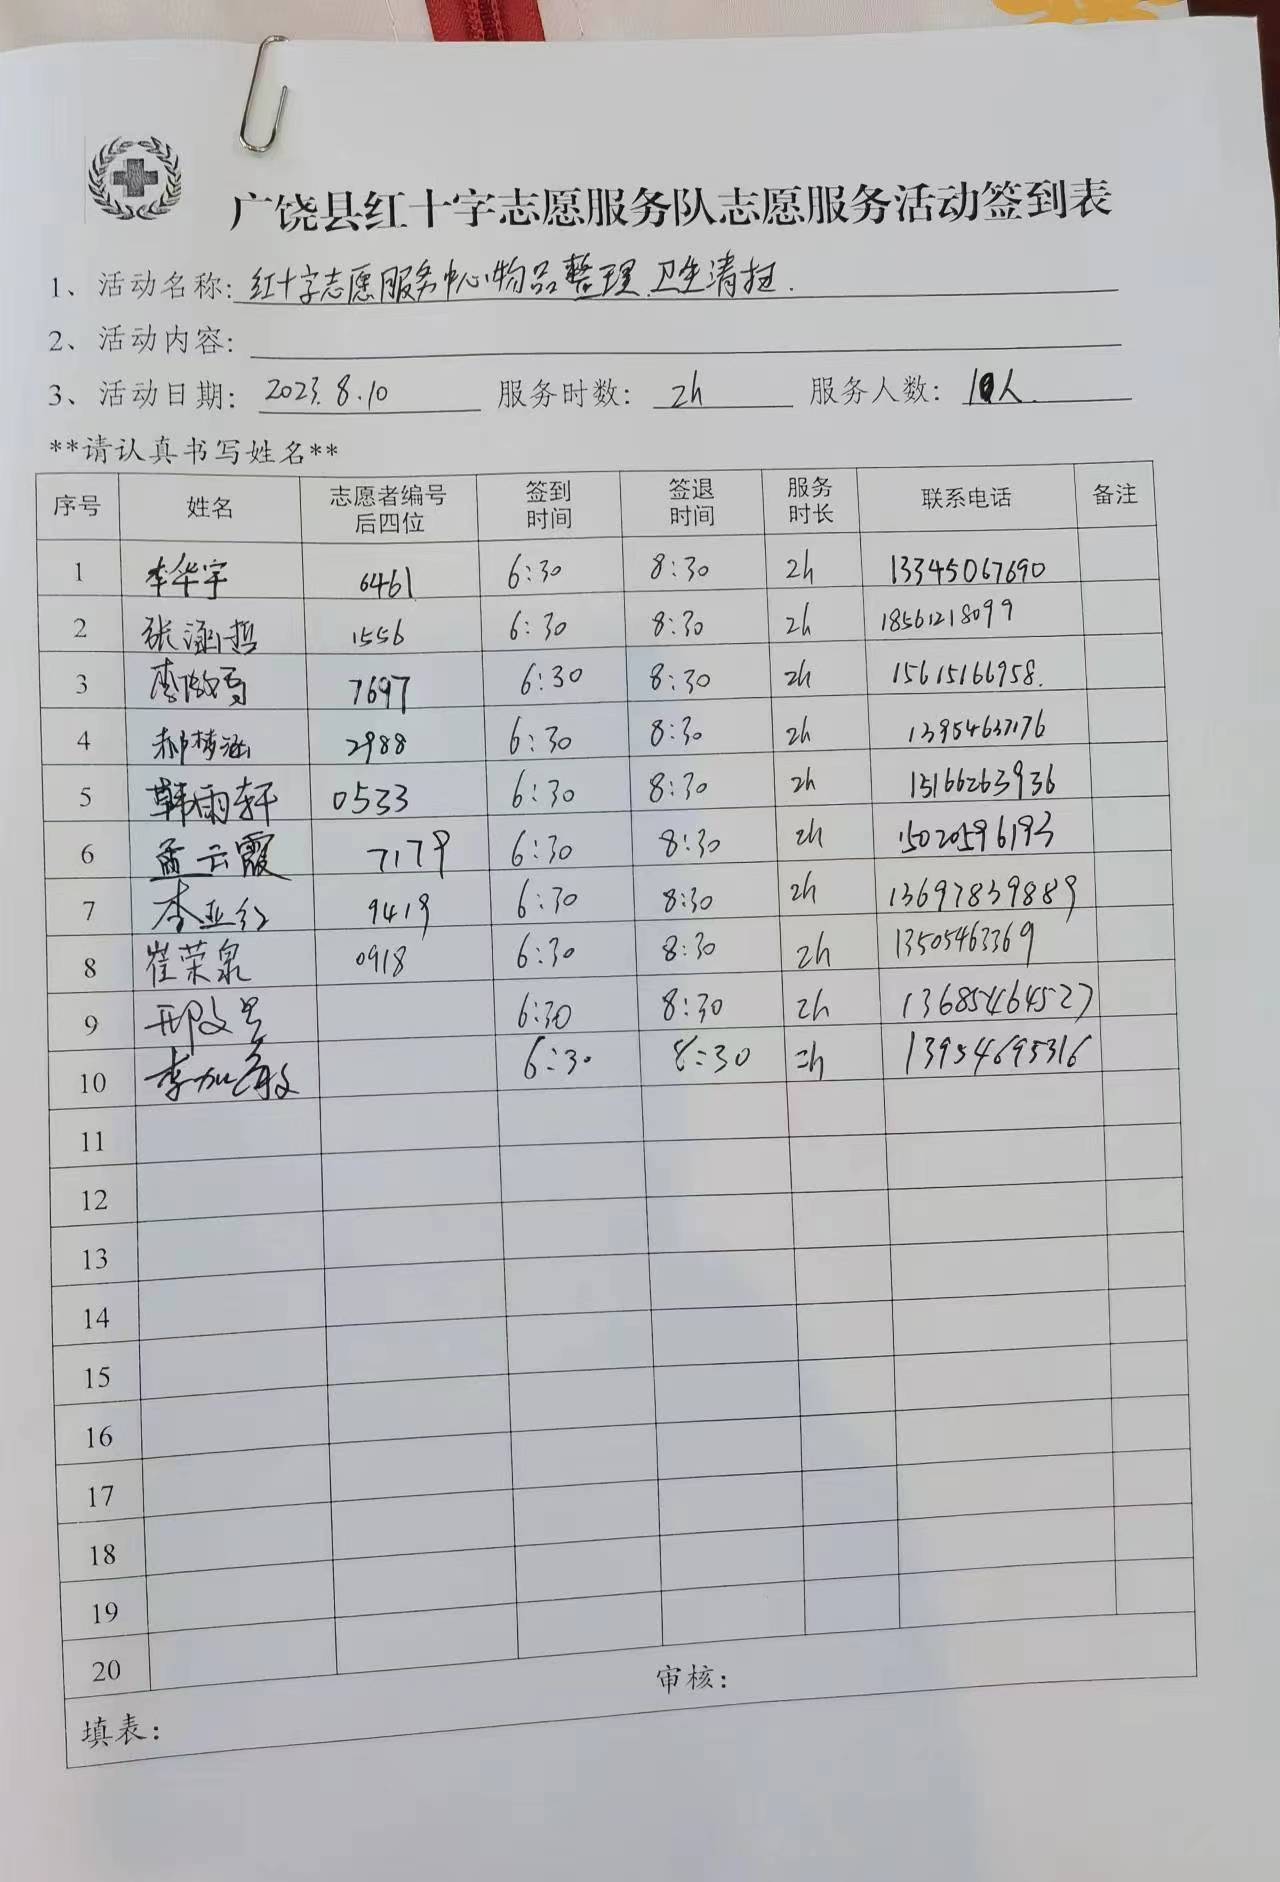 广饶县红十字志愿服务队志愿服务活动签到表
1、活动名称: 红十字志愿服务中心物品整理.卫生清扫.
2、活动内容:
3、活动日期: 2023.8.10 服务时数: 2h 服务人数: 10人.
**请认真书写姓名**
序号 姓名 志愿者编号后四位 签到时间 签退时间 服务时长 联系电话 备注
1 李华宇 0461 6:30 8:30 2h 13345067690
2 张涵哲 1556 6:30 8:30 2h 18561218099
3 李 7697 6:30 8:30 2h 15615166958.
4 郝梦涵 2988 6:30 8:30 2h 13954637176
5 韩雨轩 0533 6:30 8:30 2h 15166263936
6 孟云霞 7179 6:30 8:30 2h 15020596193
7 李亚红 9419 6:30 8:30 2h 13697839889
8 崔荣泉 0918 6:30 8:30 2h 13505463369
9 邢文 6:30 8:30 2h 13685464527
10 李加 6:30 8:30 2h 13954695316
11
12
13
14
15
16
17
18
19
20
审核:
填表: